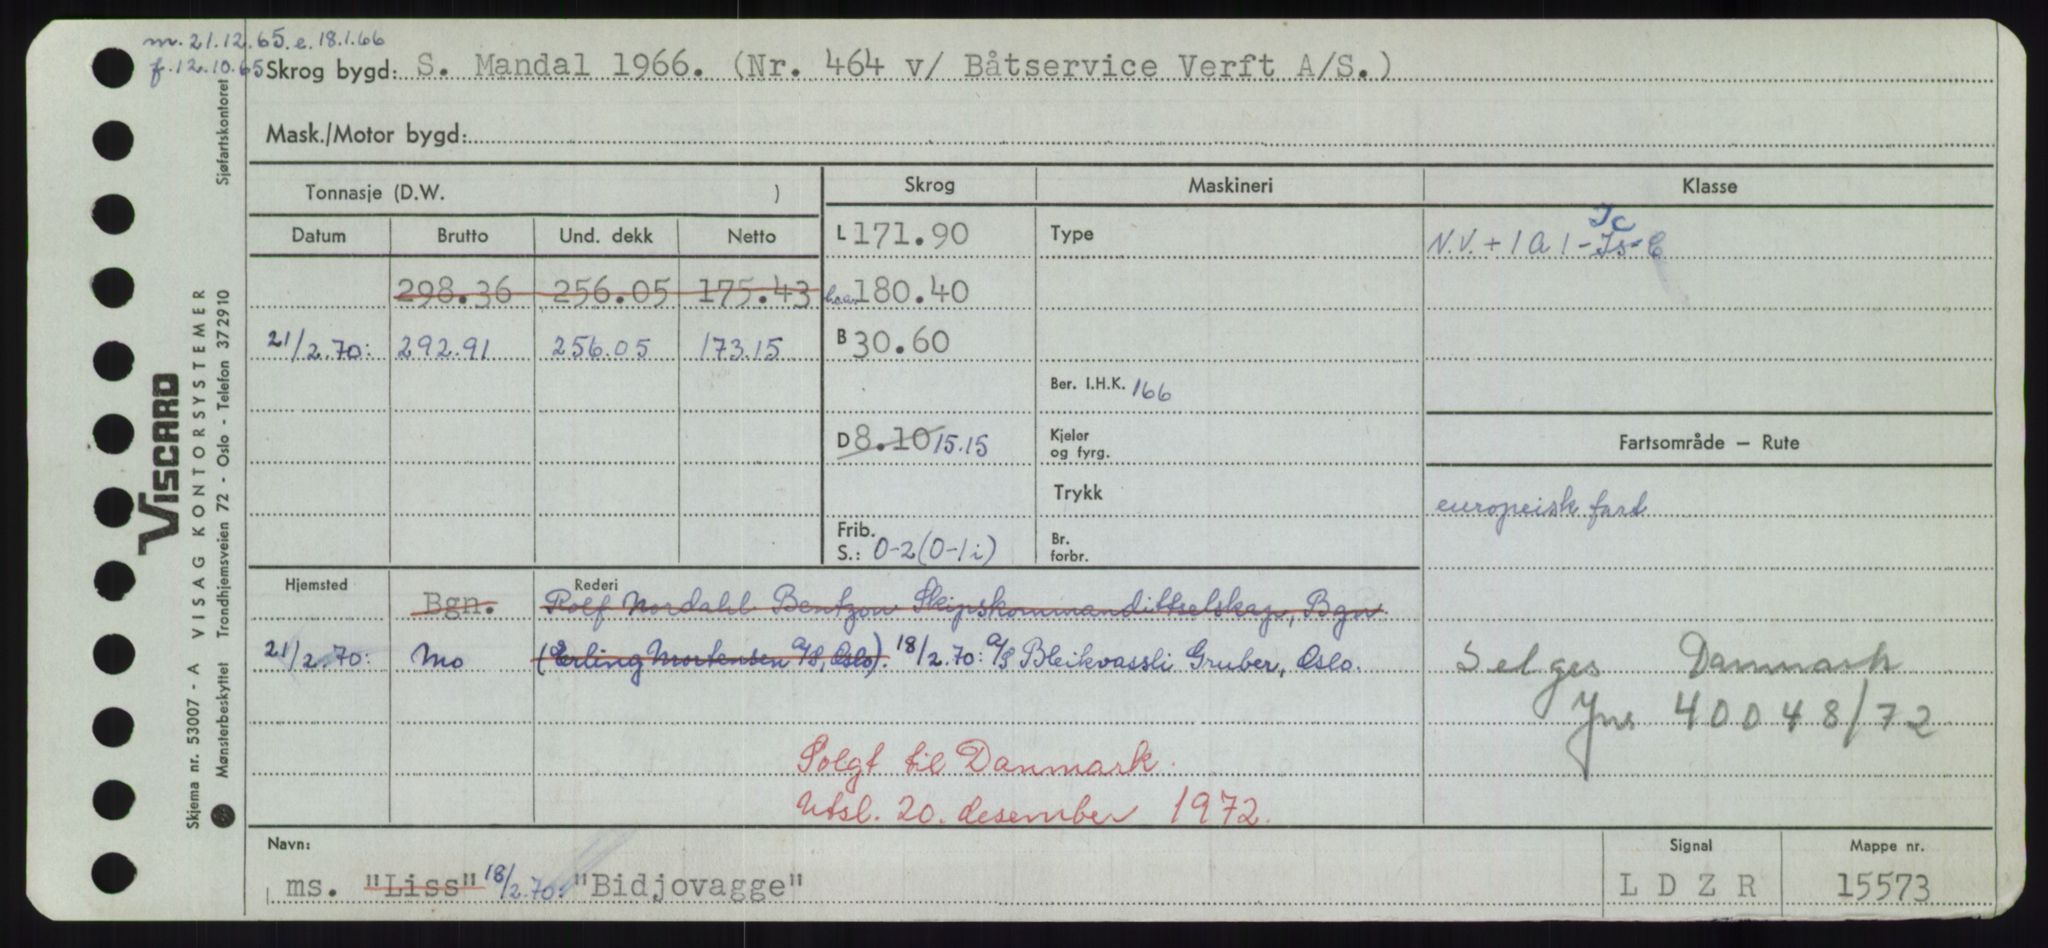 m. 21.12.65. e. 18.1.66
f. 12.10.65 Skrog bygd: S. Mandal 1966. (Nr. 464 v/ Båtservice Verft A/S.)
Mask./Motor bygd:
Tonnasje (D.W. )
Skrog Maskineri Klasse
Datum Brutto Und. dekk Netto
L 171.90 Type N.V. + 1 A 1 - Is - C
Ic
298.36 256.05 175.43 h.a.a. 180.40
21/2.70: 292.91 256.05 173.15 B 30.60
Ber. I.H.K. 166
D 8.10 15.15 Kjeler og fyrg. Fartsområde — Rute
Trykk europeisk fart
Frib. S.: 0-2 (0-1 i) Br. forbr.
Hjemsted Rederi
Bgn. Rolf Nordahl Bentzon Skipskommandittselskap, Bgn.
21/2.70: Mo (Erling Mortensen A/S, Oslo). 18/2.70: A/S Bleikvassli Gruber, Oslo.
Selges Danmark
Jnr 40048/72
Solgt til Danmark.
Utsl. 20. desember 1972.
Navn: Signal Mappe nr.
ms. "Liss" 18/2.70: "Bidjovagge" LDZR 15573
Skjema nr. 53007 - A VISAG KONTORSYSTEMER
Mønsterbeskyttet Trondhjemsveien 72 - Oslo - Telefon 372910 Sjøfartskontoret
VISCARD